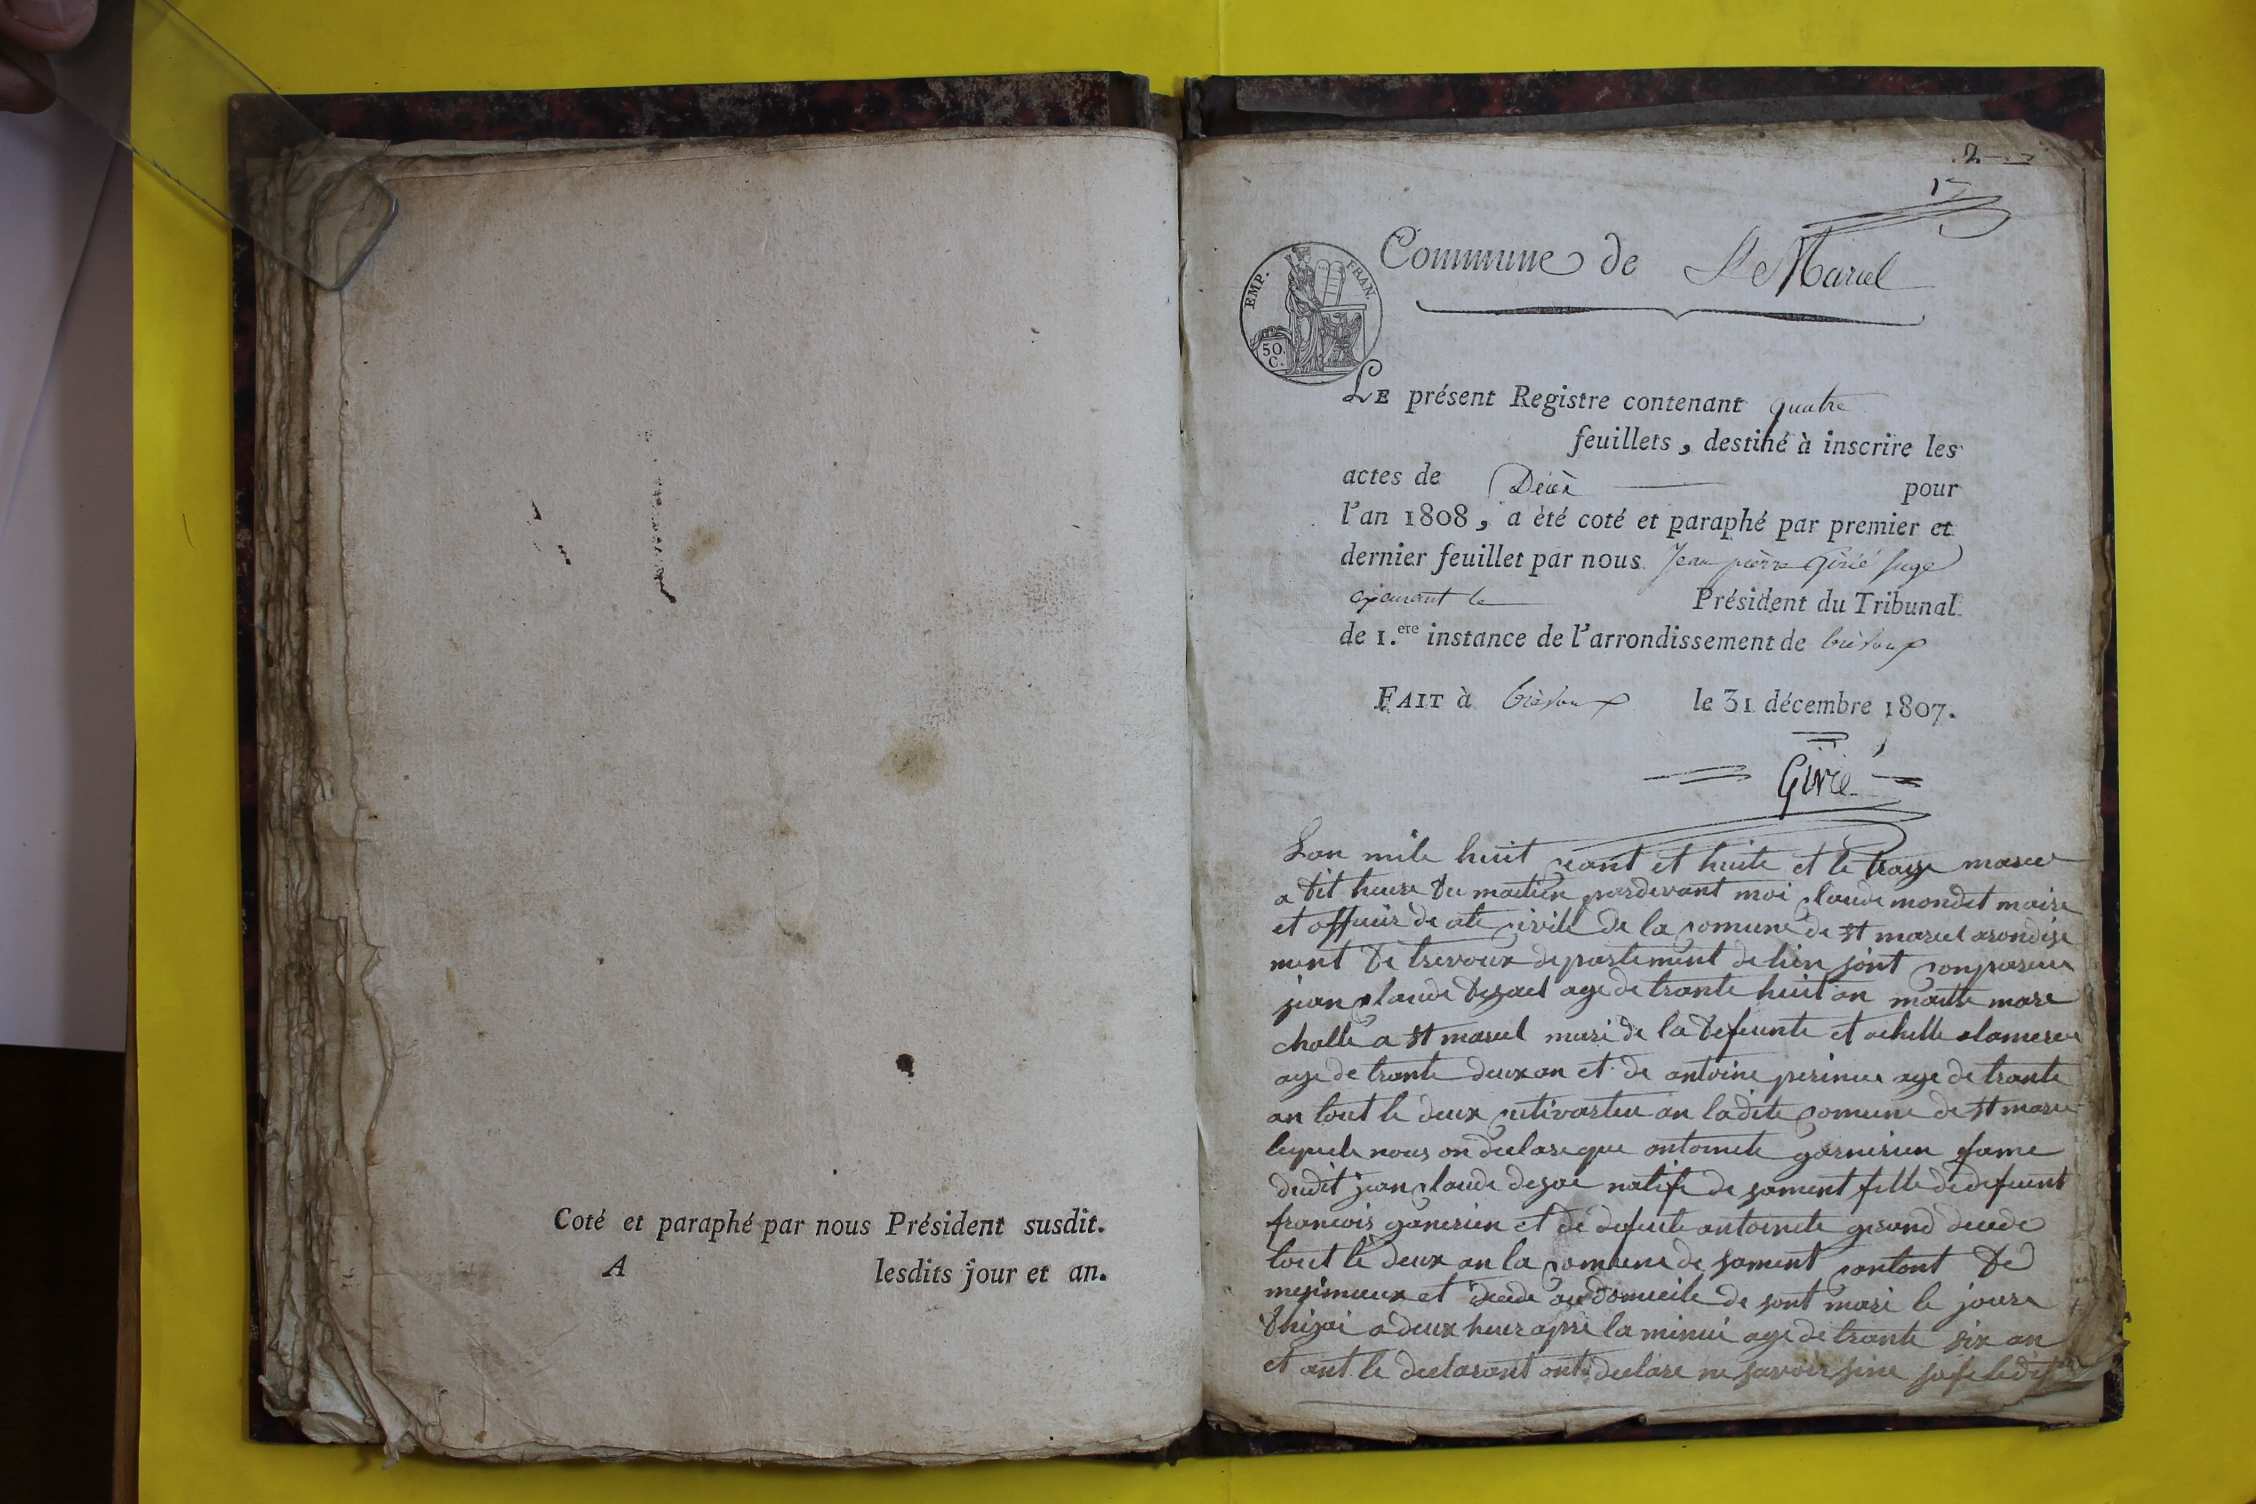 Coté et paraphé par nous Président susdit.
A lesdits jour et an.
2
1
Commune de St Marcel
EMP. FRAN.
50. C.
LE présent Registre contenant quatre
feuillets, destiné à inscrire les
actes de Décès pour
l'an 1808, a été coté et paraphé par premier et
dernier feuillet par nous Jean pierre Girié juge
exerçant le Président du Tribunal
de 1.ere instance de l'arrondissement de trévoux
FAIT à trévoux le 31 décembre 1807.
Girié
Lan mile huit cant et huite et le traize
a dit heure du matien pardevant moi claude mondet maire
et officier de ate civile de la comune de st marcel arondise
ment de trevoux departement de lien sont conpareu
jean claude age de trante huit an maitre mare
challe a st marcel mari de la defeunte et achille
age de trante deux an et de antoine age de trante
an tout le deux cultivasteu an ladite comune de st marcel
lequele nous on declare que antoinete garnerien fame
dudit jean claude native de sament fille de defeunt
francois garnerien et de defeute antoinete gerand decede
tout le deux an la comune de sament cantont de
meximieux et decede au domicile de sont mari le joure
dhizai a deux heur apre la minui age de trante six an
et ant le declarant onts declare ne savoir sine